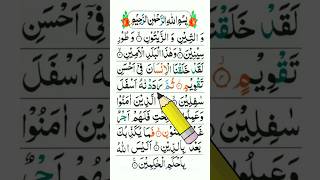 بِسْمِ اللهِ الرَّحْمٰنِ الرَّحِيْمِ
وَ التِّيْنِ وَ الزَّيْتُوْنِ ۙ وَ طُوْرِ
سِيْنِيْنَ ۙ وَ هٰذَا الْبَلَدِ الْاَمِيْنِ ۙ
لَقَدْ خَلَقْنَا الْاِنْسَانَ فِيْۤ اَحْسَنِ
تَقْوِيْمٍ ثُمَّ رَدَدْنٰهُ اَسْفَلَ
سٰفِلِيْنَ ۙ الَّذِيْنَ اٰمَنُوْا
وَ عَمِلُوا فَلَهُمْ اَجْرٌ
غَيْرُ فَمَا يُكَذِّبُكَ
بَعْدُ بِالدِّيْنِ ؕ اَلَيْسَ اللّٰهُ
بِاَحْكَمِ الْحٰكِمِيْنَ